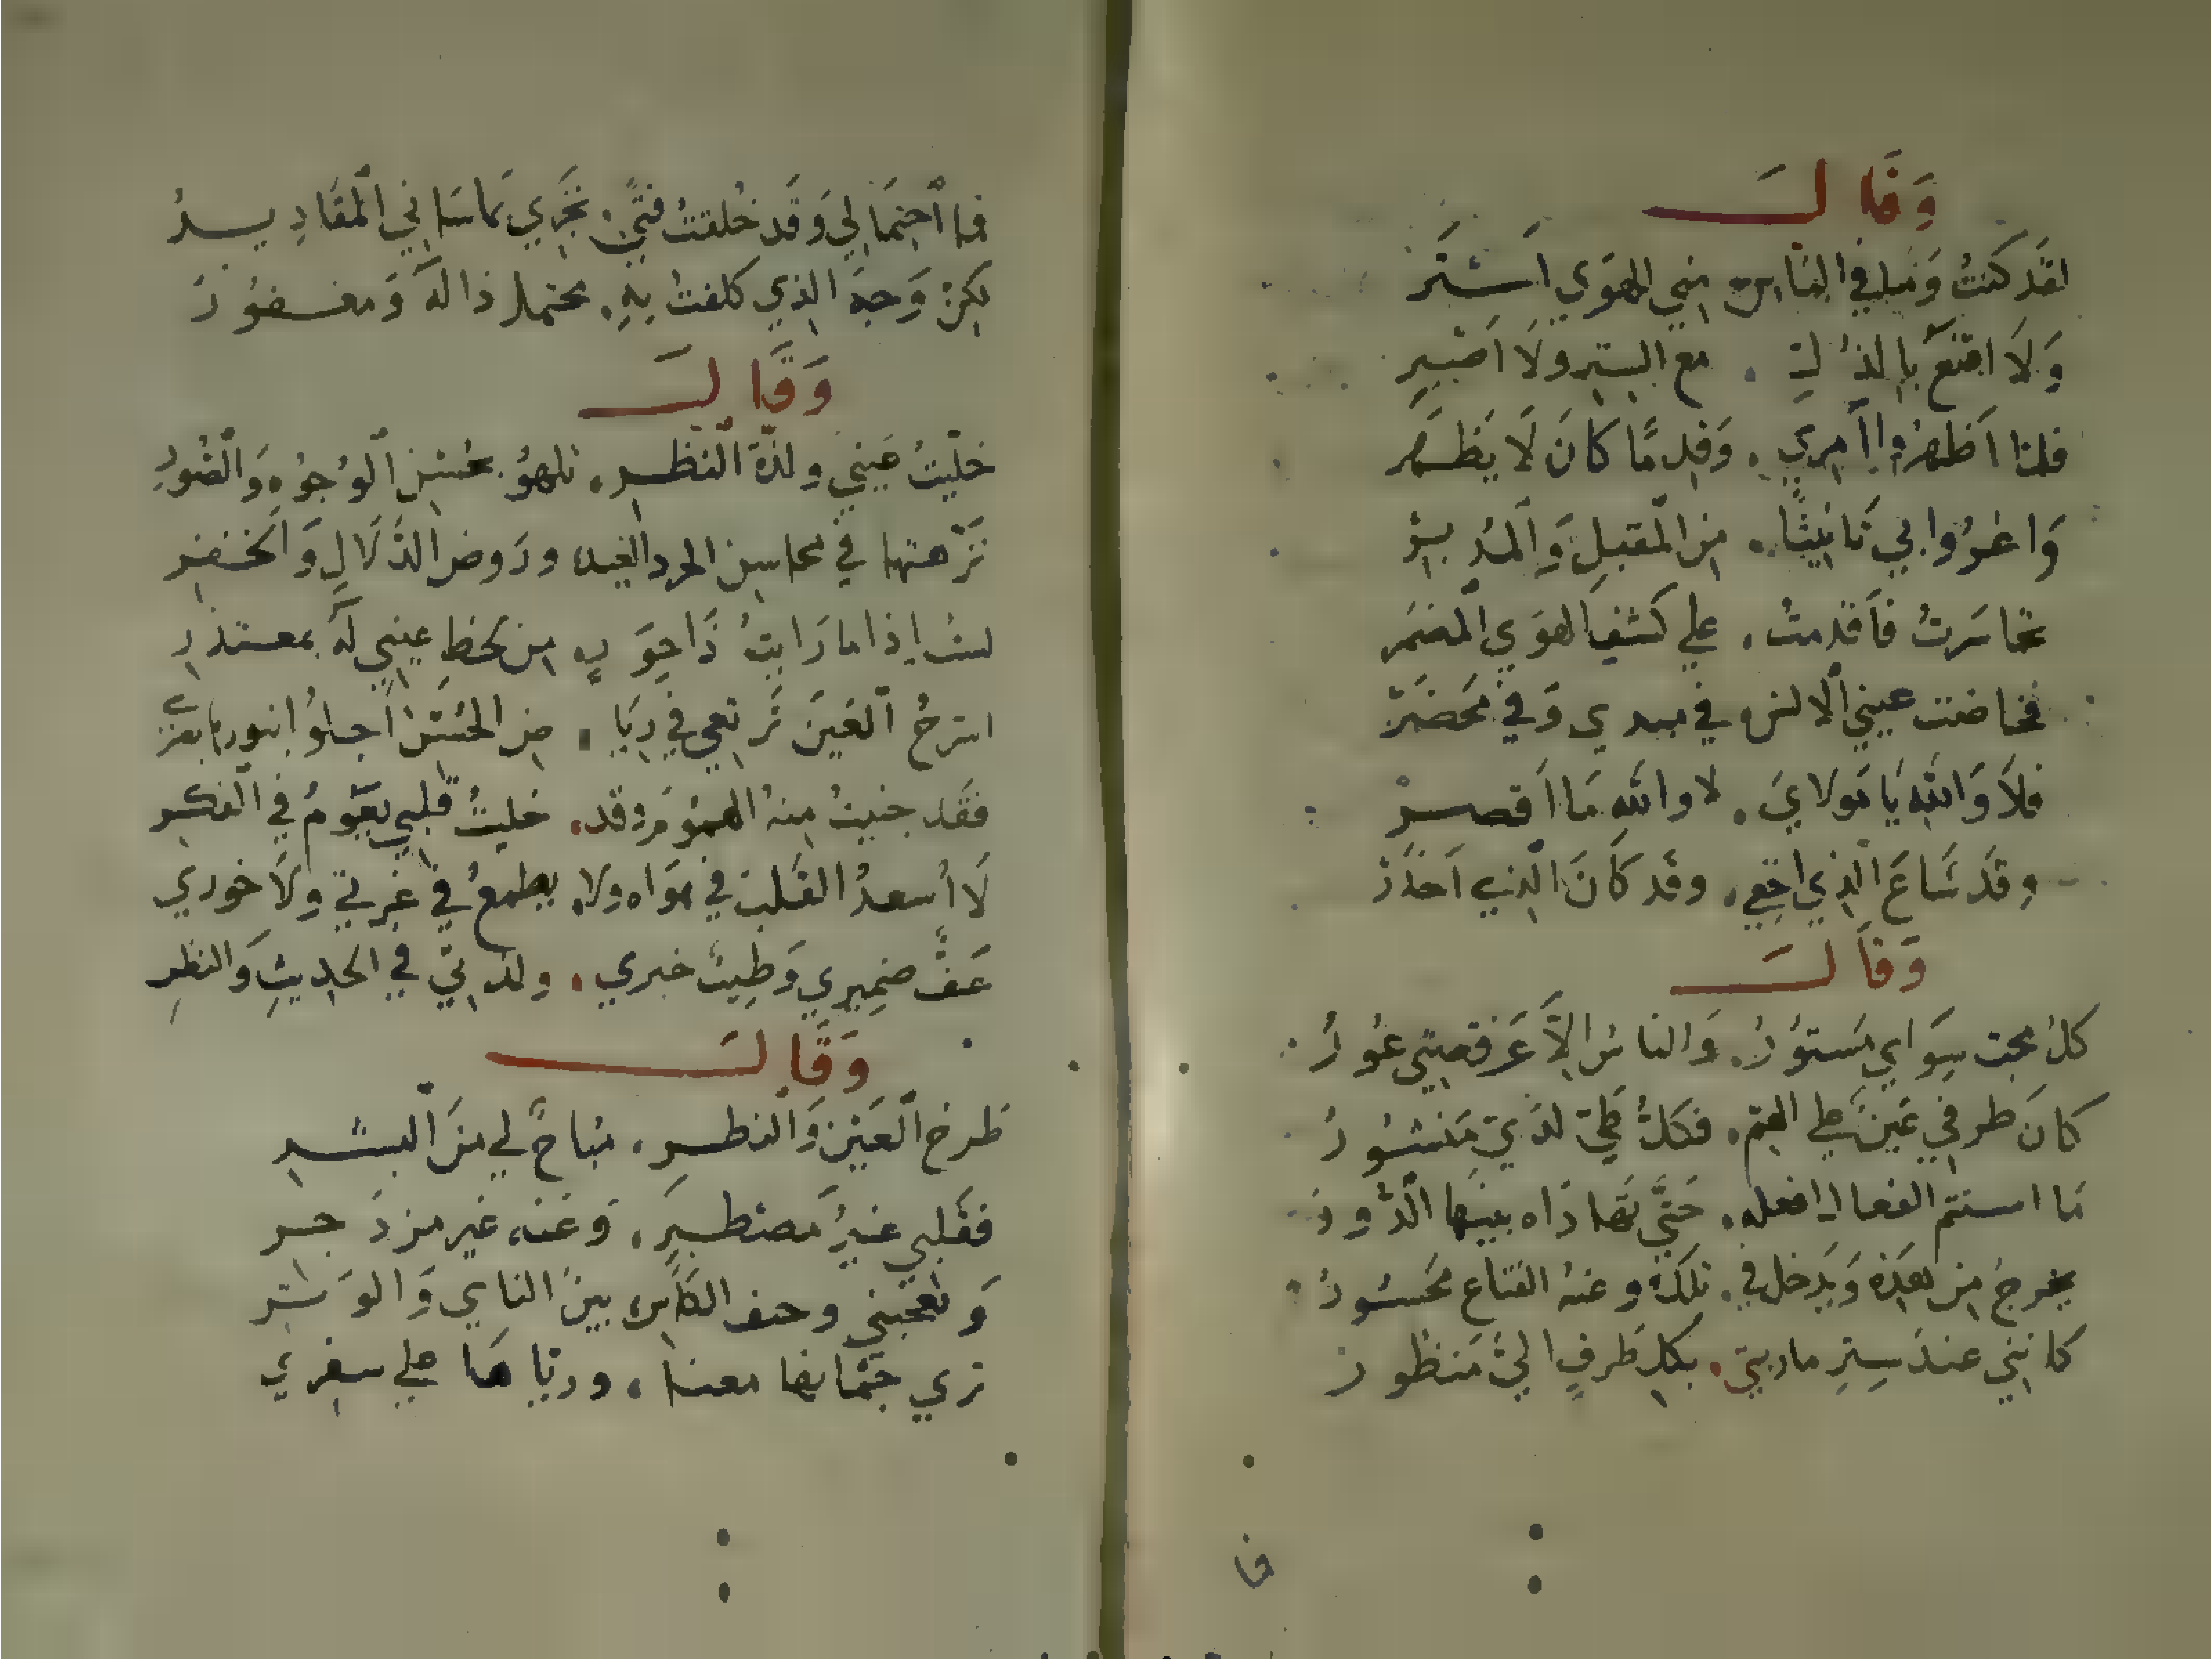 وَقَالَ
لقَد كنتُ وَميلي في الناس مني الهوَي اَستَتر
وَلاَ اقنَعُ بالذُلِ . مع الستِرِ ولَا اَصْبِرِ
فلمّا اَظهرُوا اَمرِي . وَقِدمًا كانَ لَا يَظهَر
وَاغرُوا بي تَانِيثًا . مِن المُقبلِ وَالمُدبِرُ
تجَاسَرتُ فاَقدمتُ . علي كَشفِ الهوَي المُضمَر
فخاضت عيني الالسن في مبدي وَفي مَحضَرْ
فلاَ وَاللهِ يَا مَولَايَ . لا واللهِ مَا اَقصرْ
وقَد شَاعَ الذِي اخفِي . وقَد كَانَ الذِي اَحذَرْ
وَقَالَ
كلُ محبّ سِوَاي مَستوُرُ . وَالناسُ الاَّ عَن قصتي عُورُ
كانَ طرفي عَينٌ علي الهم . فكلُ طيٍّ لدَيَّ مَنشوُرُ
مَا استتم الفعال افعله . حَتَّي تَهادَاه بينَها الدُّورُ
يخرجُ مِن هَذِهِ وَيَدخل في . تلكَ وعنهُ القناع مَحسُورُ
كانني عندَ سِترِ ماربتي . بكلِ طَرفٍ اليَّ مَنظورُ
فا
فما اَحتمَالي وَقَد خُلقتُ فتًي . تجَرِي بمَا سَاني المقَادِيرُ
لكِنْ وَجهَ الذِي كلفتُ بِهِ . محتملٌ ذا لهَ وَمغفوُرُ
وَقَالَ
خلّيتُ عَينيِ ولذةَ النظرِ . تلهوُ بحُسنِ الوُجوُهِ وَالصُوَرِ
نَزّهتها في محاسِن الخرد الغيد وَرَوض الدَّلَالِ وَالخفر
لستُ اِذا ما رَايتُ ذَا حوَرٍ . مِن لحظِ عيني لهَ بمعتذرِ
اسرحُ العَينَ تَرتعي في رُبَا . مِن الحُسنِ اَجلوُ بنورها بصري
فقَد جنيتُ مِنهُ الهموُمَ وقد . خليتُ قلبي يعَوُمُ في الفكرِ
لَا اُسعدُ القَلبَ في هوَاه ولا . يطمعُ في غرتي ولَا خوري
عَفٌّ ضمِيرِي وَطِيبٌ خبري . ولذتي في الحديثِ وَالنظرِ
وَقَالَ
طَرحَ العَينِ وَالنظرِ . مُبَاحٌ لي مِنَ البشرِ
فقَلبي عنهُ مصطبرٍ . وَعنه غَير مزدَجرِ
وَتعجبني وحف الكَأسِ بينَ النايِ وَالوَتَرِ
تري جثمانها معنا . ورَيّاهَا علي سفرِي